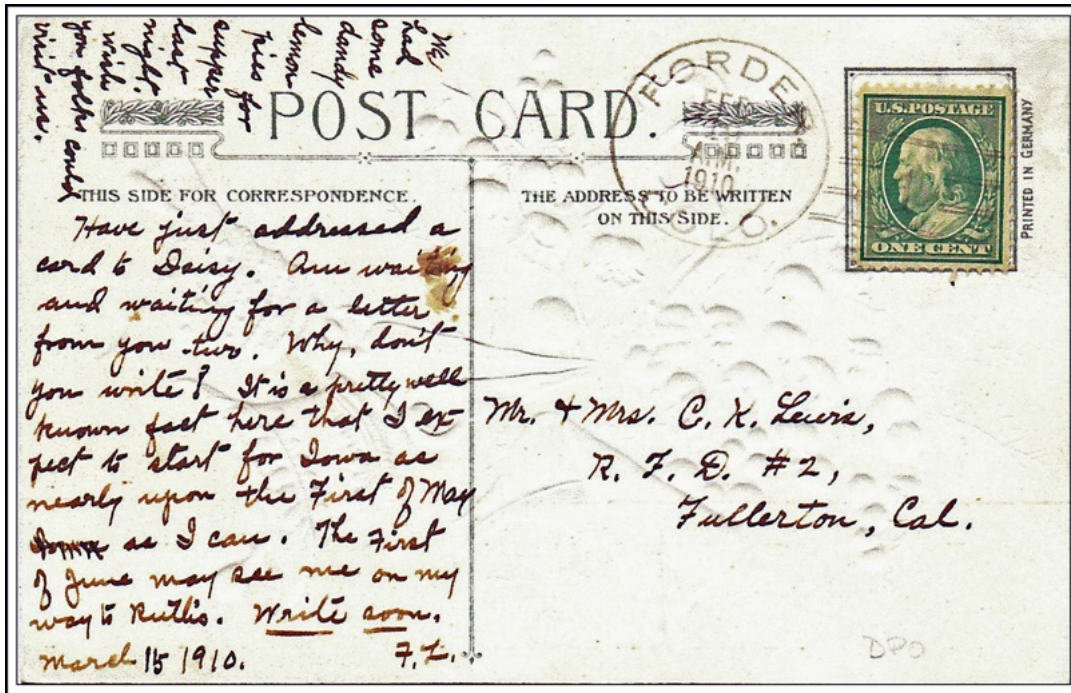 We
had
some
dandy
lemon
pies for
supper
last
night.
wish
you folks could
visit us.
POST CARD.
FORDER
FEB
A.M.
1910
COLO.
U.S. POSTAGE
ONE CENT
PRINTED IN GERMANY
THIS SIDE FOR CORRESPONDENCE.
THE ADDRESS TO BE WRITTEN
ON THIS SIDE.
Have just addressed a
card to Daisy. Am waiting
and waiting for a letter
from you two. Why, don't
you write? It is a pretty well
known fact here that I ex
pect to start for Iowa as
nearly upon the First of May
as I can. The First
of June may see me on my
way to Ruth's. Write soon.
March 15 1910. F.L.
Mr. + Mrs. C. K. Lewis,
R. F. D. #2,
Fullerton, Cal.
DPO